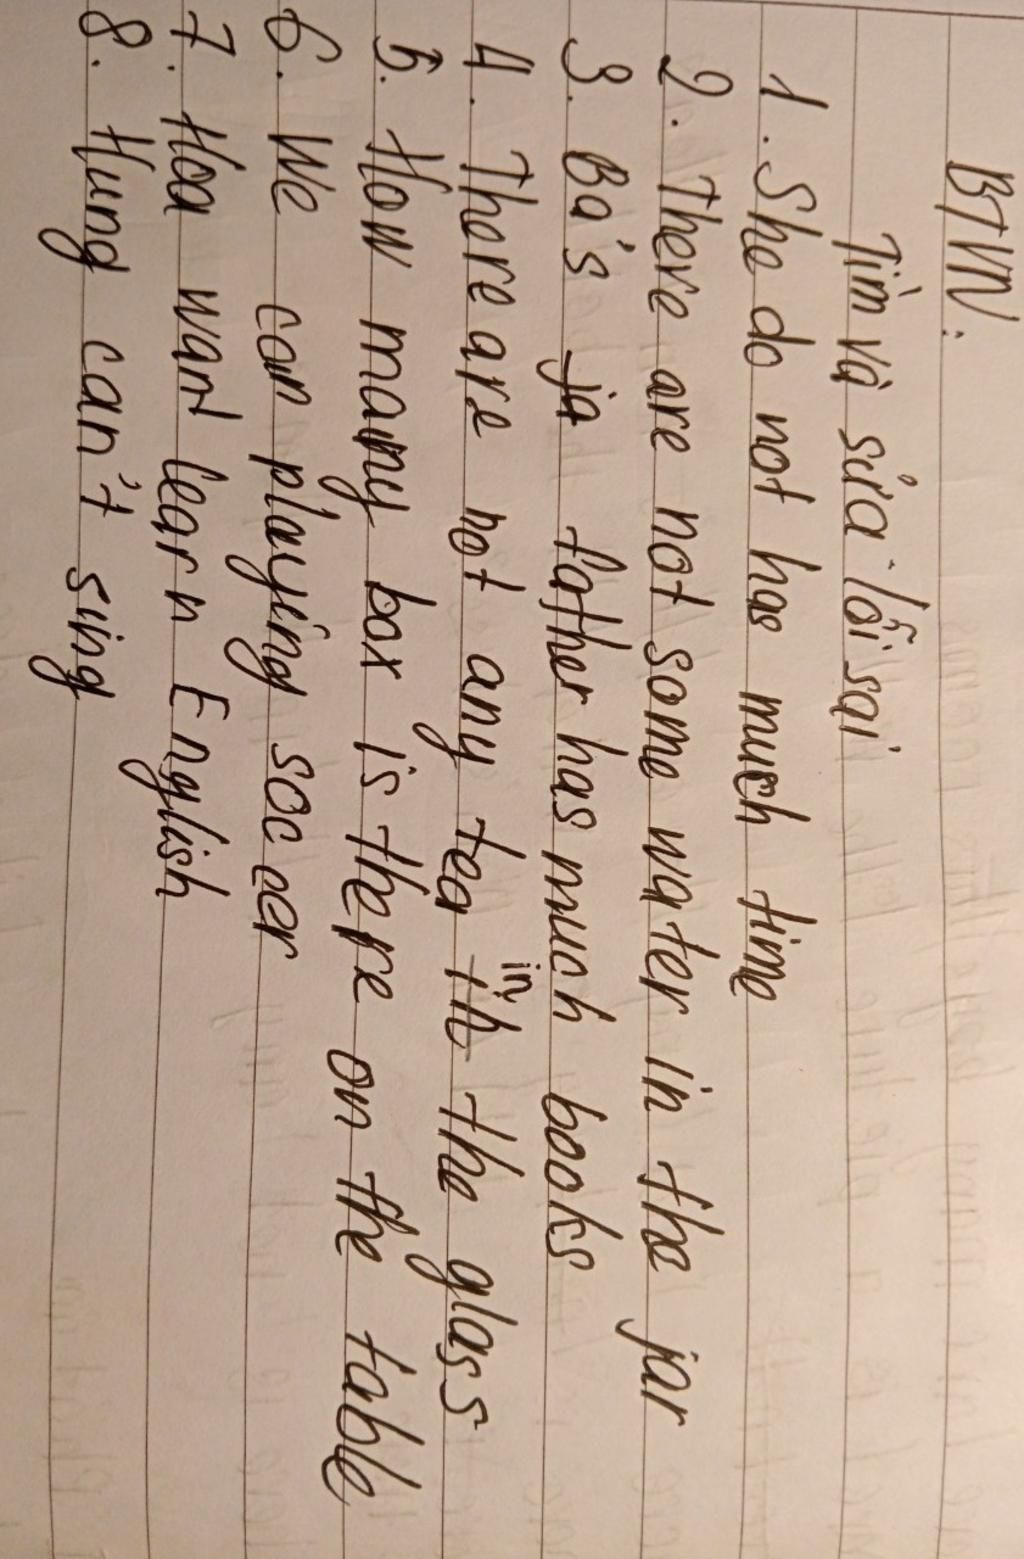 BTVN:
Tìm và sửa lỗi sai
1. She do not has much time
2. There are not some water in the jar
3. Ba's ja father has much books
4. There are not any tea in in the glass
5. How many box is there on the table
6. We can playing soccer
7. Hoa want learn English
8. Hung can't sing